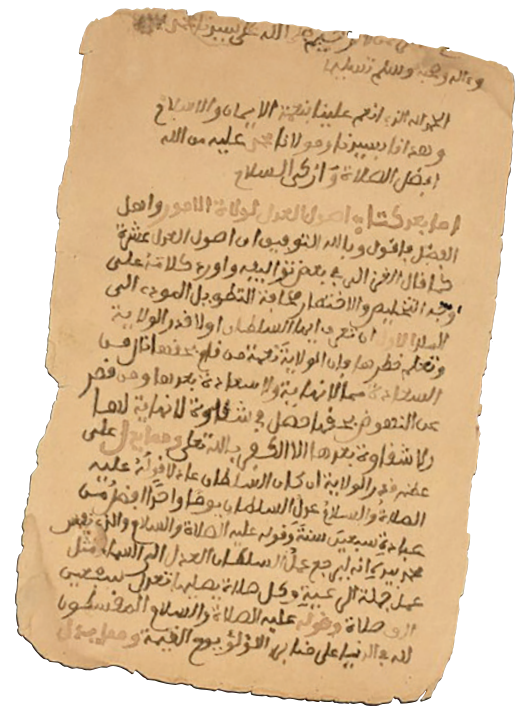 الله الرحمن الرحيم صلى الله على سيدنا محمد
وءاله وصحبه وسلم تسليما
الحمد لله الذي انعم علينا بنعمة الايمان والاسلام
وهدانا بسيدنا ومولانا محمد عليه من الله
افضل الصلاة وازكى السلام
اما بعد كتاب اصول العدل لولاة الامور واهل
الفضل فاقول وبالله التوفيق ان اصول العدل عشرة
كما قال الغزالي في بعض تواليفه واورد كلامه على
وجه التلخيص والاختصار مخافة التطويل المودي الى
الملل الاول ان تعرف ايها السلطان اولا قدر الولاية
وتعلم خطرها فان الولاية نعمة من قام بحقها نال من
السعادة مما لا نهاية ولا سعادة بعدها ومن قصر
عن النهوض بحقها حصل في شقاوة لا نهاية لها
ولا شقاوة بعدها الا الكفر بالله تعلى ومما يدل على
عظم قدر الولاية ان كان السلطان عادلا قوله عليه
الصلاة والسلام عدل السلطان يوما واحدا افضل من
عبادة سبعين سنة وقوله عليه الصلاة والسلام والذي نفس
محمد بيده انه ليرجع عمل السلطان العدل الى السماء مثل
عمل جملة الرعية وكل صلاة يصليها تعدل سبعين
الف صلاة وقوله عليه الصلاة والسلام المقسطون
لله في الدنيا على منابر اللؤلؤ يوم القيمة ومما يدل